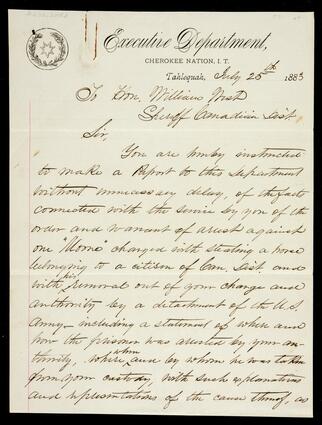 Executive Department,
CHEROKEE NATION, I. T.
Tahlequah, July 25th 1883
To Hon. William West
Sheriff Canadian Dist
Sir,
You are hereby instructed
to make a Report to this Department
without unnecessary delay, of the facts
connected with the service by you of the
order and warrant of arrest against
one "Moore" charged with stealing a horse
belonging to a citizen of Can. Dist. and
with his removal out of your charge and
authority by a detachment of the U.S.
Army — including a statement of when and
how the prisoner was arrested by your au-
thority, where, when and by whom he was taken
from your custody, with such explanations
and representations of the cause thereof, as